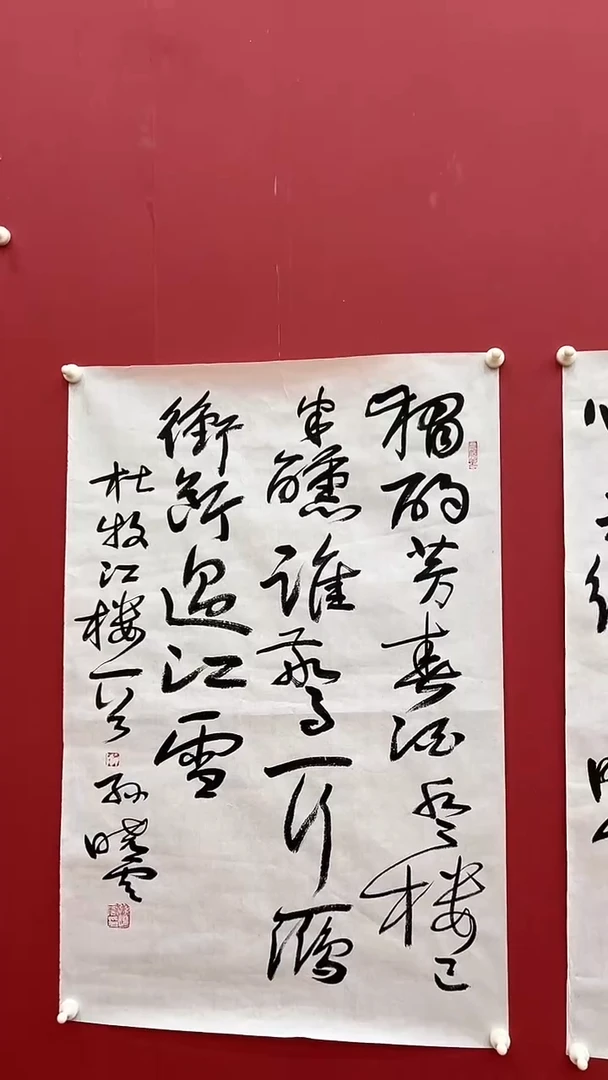 獨酌芳春酒登楼已
半醺誰驚一行鴈
衝斷過江雲
杜牧江楼一首 孫曉雲